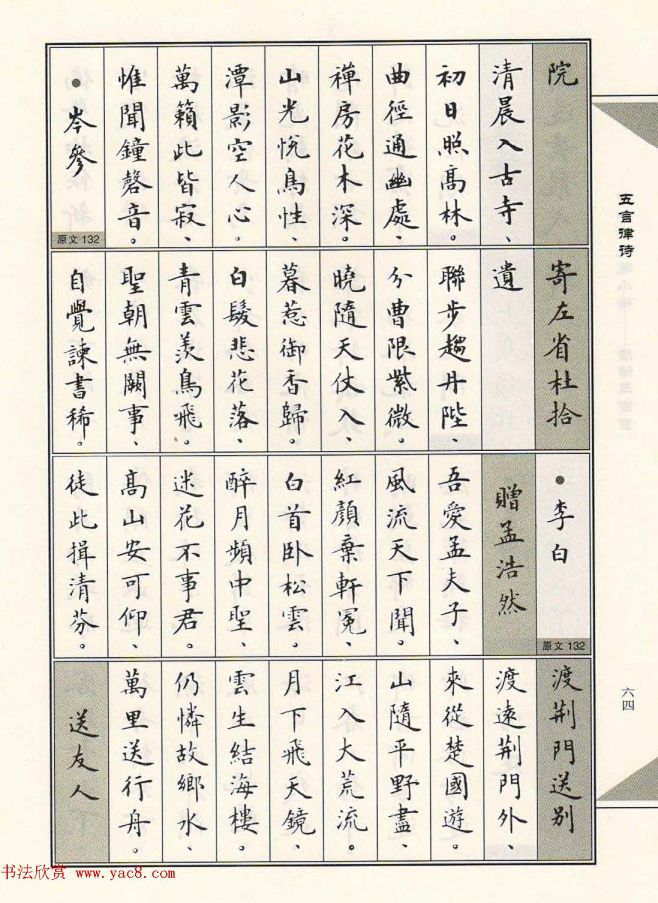 五言律诗
院
清晨入古寺、
初日照高林。
曲徑通幽處、
禪房花木深。
山光悅鳥性、
潭影空人心。
萬籟此皆寂、
惟聞鐘磬音。
●岑參
原文132
寄左省杜拾
遺
聯步趨丹陛、
分曹限紫微。
曉隨天仗入、
暮惹御香歸。
白髮悲花落、
青雲羨鳥飛。
聖朝無闕事、
自覺諫書稀。
●李白
原文132
贈孟浩然
吾愛孟夫子、
風流天下聞。
紅顏棄軒冕、
白首卧松雲。
醉月頻中聖、
迷花不事君。
高山安可仰、
徒此揖清芬。
渡荆門送别
渡遠荆門外、
來從楚國遊。
山隨平野盡、
江入大荒流。
月下飛天鏡、
雲生結海樓。
仍憐故鄉水、
萬里送行舟。
送友人
六四
书法欣赏 www.yac8.com